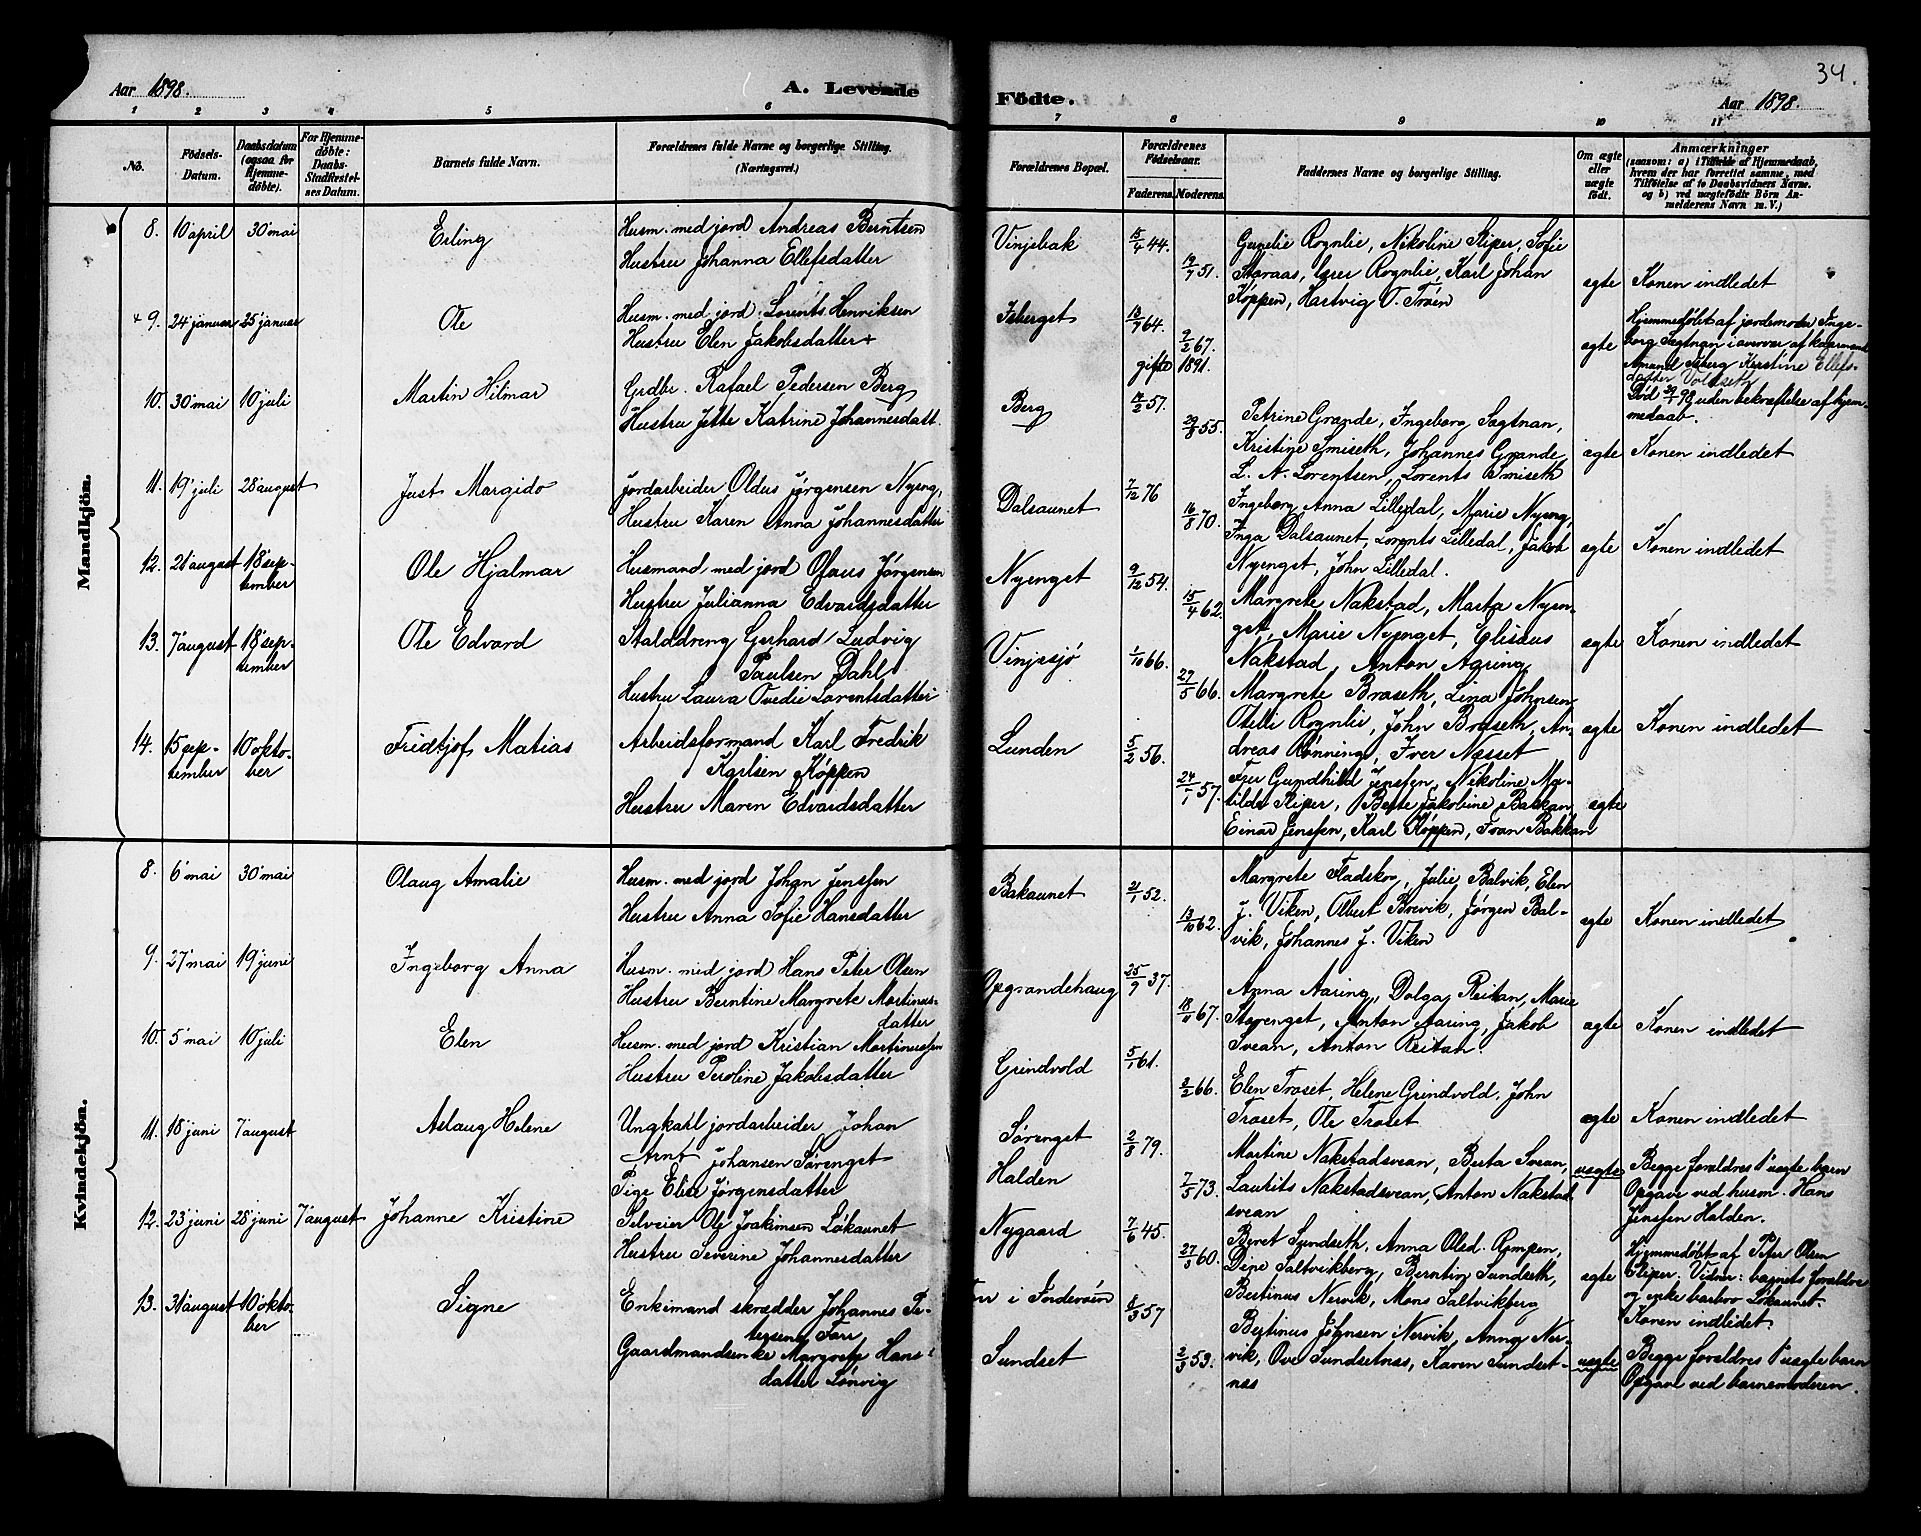 34.
Aar 1898.
A. Levende
Födte.
Aar 1898.
1 2 3 4 5 6
7 8 9 10 11
No.
Födsels-Datum.
Daabsdatum (ogsaa for Hjemmedöbte).
For Hjemmedöbte: Daabs-Stadfæstelses Datum.
Barnets fulde Navn.
Forældrenes fulde Navne og borgerlige Stilling.
(Næringsvei.)
Forældrenes Bopæl.
Forældrenes Födselsaar.
Faderens. Moderens.
Faddernes Navne og borgerlige Stilling.
Om ægte eller uægte födt.
Anmærkninger
(saasom: a) i Tilfælde af Hjemmedaab,
hvem der har forrettet samme, med
Tilföielse af to Daabsvidners Navne.
og b) ved uægtefödte Börn An-
melderens Navn m. V.)
Mandkjön.
8. 10 april 30 mai Erling
Husm. med jord Andreas Berntsen
Hustru Johanna Ellefsdatter
Vinjebak 15/4 44. 19/7 51.
Gurelie Rognlie, Nikoline Sliper, Sofie
Storaas, Iver Rognlie, Karl Johan
Köppen, Hartvig O. Tröen
ægte Konen indledet
+ 9. 24 januar 25 januar Ole
Husm. med jord Lorents Henriksen
Hustru Elen Jakobsdatter +
Isberget 13/7 64. 9/2 67.
gifte 1891.
ægte
Hjemmedøbt af jordemoder Inge-
borg Sægtnan i overvær af
Amund Isberg Kirstine Ellefs-
datter Voldseth
Død 29/1 98 uden bekræftelse af hjem-
medaab.
10. 30 mai 10 juli Martin Hilmar
Grdbr. Rafael Pedersen Berg
Hustru Jette Katrine Johannesdatt.
Berg 14/2 57. 29/8 55.
Petrine Grande, Ingeborg Sægtnan,
Kristine Smiseth, Johannes Grande,
L. N. Lorentsen, Lorents Smiseth
ægte Konen indledet
11. 19 juli 28 august Just Margido
Jordarbeider Oldus Jørgensen Nyeng,
Hustru Karen Anna Johannesdatter
Dalsaunet 7/12 76 16/8 70.
Ingeborg Anna Lilledal, Marie Nyeng,
Inga Dalsaunet, Lorents Lilledal, Jakob
Nyenget, John Lilledal.
ægte Konen indledet
12. 21 august 18 sep-
tember Ole Hjalmar
Husmand med jord Olaus Jørgensen
Hustru Julianna Edvardsdatter
Nyenget 9/12 54. 15/4 62.
Margrete Nakstad, Marta Nyen-
get, Marie Nyenget, Elisæus
Nakstad, Anton Aaring
ægte Konen indledet
13. 7 august 18 sep-
tember Ole Edvard
Stalddreng Gerhard Ludvig
Paulsen Dahl
Hustru Laura Ovedie Lorentsdatter
Vinjesjø 1/10 66. 27/5 66.
Margrete Braseth, Lina Johnsen,
Otelli Rognlie, John Braseth, An-
dreas Rönning, Iver Næsset
ægte Konen indledet
14. 15 sep-
tember 10 okto-
ber Fridtjof Matias
Arbeidsformand Karl Fredrik
Karlsen Köppen
Hustru Maren Edvardsdatter
Lunden 5/2 56. 24/1 57.
Fru Gundhild Jenssen, Nikoline Ma-
tilde Sliper, Berte Jakobine Bakkan,
Einar Jenssen, Karl Köppen, Ivan Bakkan
ægte
Kvindekjön.
8. 6 mai 30 mai Olaug Amalie
Husm. med jord Johan Jenssen
Hustru Anna Sofie Hansdatter
Bakaunet 21/1 52. 13/10 62.
Margrete Fladskov, Julie Balvik, Elen
J. Viken, Albert Brevik, Jørgen Bal-
vik, Johannes J. Viken
ægte Konen indledet
9. 27 mai 19 juni Ingeborg Anna
Husm. med jord Hans Peter Olsen
Hustru Berntine Margrete Martinus-
datter
Opgrandehaug 25/9 37. 18/11 67.
Anna Aaring, Dolga, Reitan, Marie
Størenget, Anton Aaring, Jakob
Svean, Anton Reitan.
ægte Konen indledet
10. 5 mai 10 juli Elen
Husm. med jord Kristian Martinussen
Hustru Peroline Jakobsdatter
Grindvold 5/1 61. 3/2 66.
Elen Troset, Helene Grindvold, John
Troset, Ole Troset
ægte Konen indledet
11. 18 juni 7 august Aslaug Helene
Ungkarl jordarbeider Johan
Arnt Johansen Sørenget
Pige Elise Jørgensdatter
Sørenget
Halden 2/8 79. 7/5 73.
Martine Nakstadsvean, Berta Svean,
Laurits Nakstadsvean, Anton Nakstad
svean
uægte
Begge forældres 1' uægte barn
Opgave ved husm. Hans
Jenssen Halden.
12. 23 juni 28 juni 7 august Johanne Kristine
Selveier Ole Joakimsen Løkaunet
Hustru Severine Johannesdatter
Nygaard 7/6 45. 27/3 60.
Beret Sundseth, Anna Olsd. Rømpen,
Dine Saltvikberg, Berntin Sundseth,
Bertinus Nervik, Mons Saltvikberg
ægte
Hjemmedøbt af Peter Olsen
Sliper. Vidner: barnets forældre
og enke barbro Løkaunet.
Konen indledet.
13. 31 august 10 okto-
ber Signe
Enkemand skrædder Johannes Pe-
tersen Farr
Gaardmandsenke Margrete Hans-
datter Sønvig
i Inderøen
Sundset 8/3 57 2/3 53.
Bertinus Johnsen Nervik, Anna Ner-
vik, Ove Sundsetnæs, Karen Sundset-
næs
uægte
Begge forældres 1' uægte barn
Opgave ved barnemoderen.